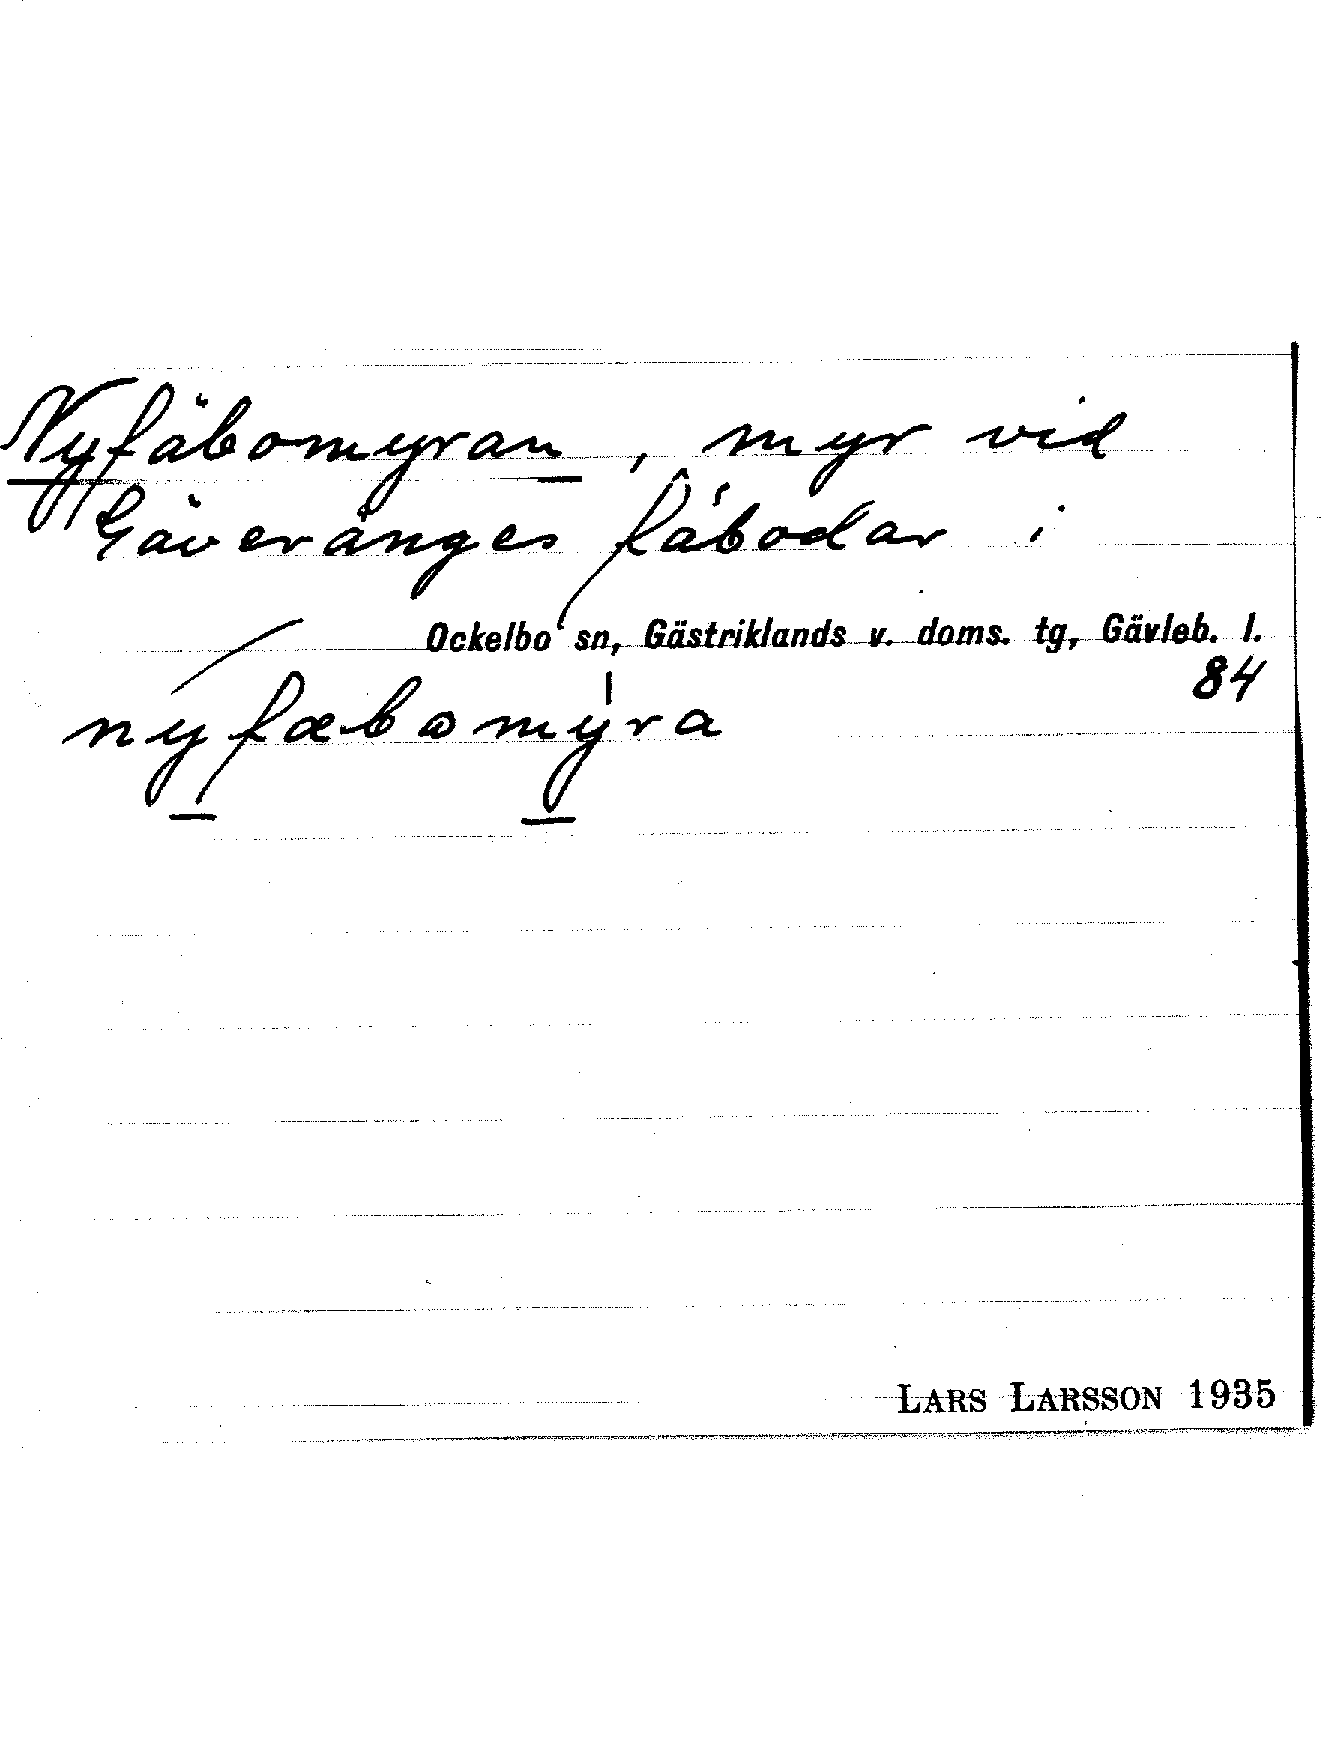 Nyfäbomyran, myr vid
Gäveränges fäbodar i
Ockelbo sn, Gästriklands v. doms. tg, Gävleb. l.
84
nyfæbomyra
LARS LARSSON 1935